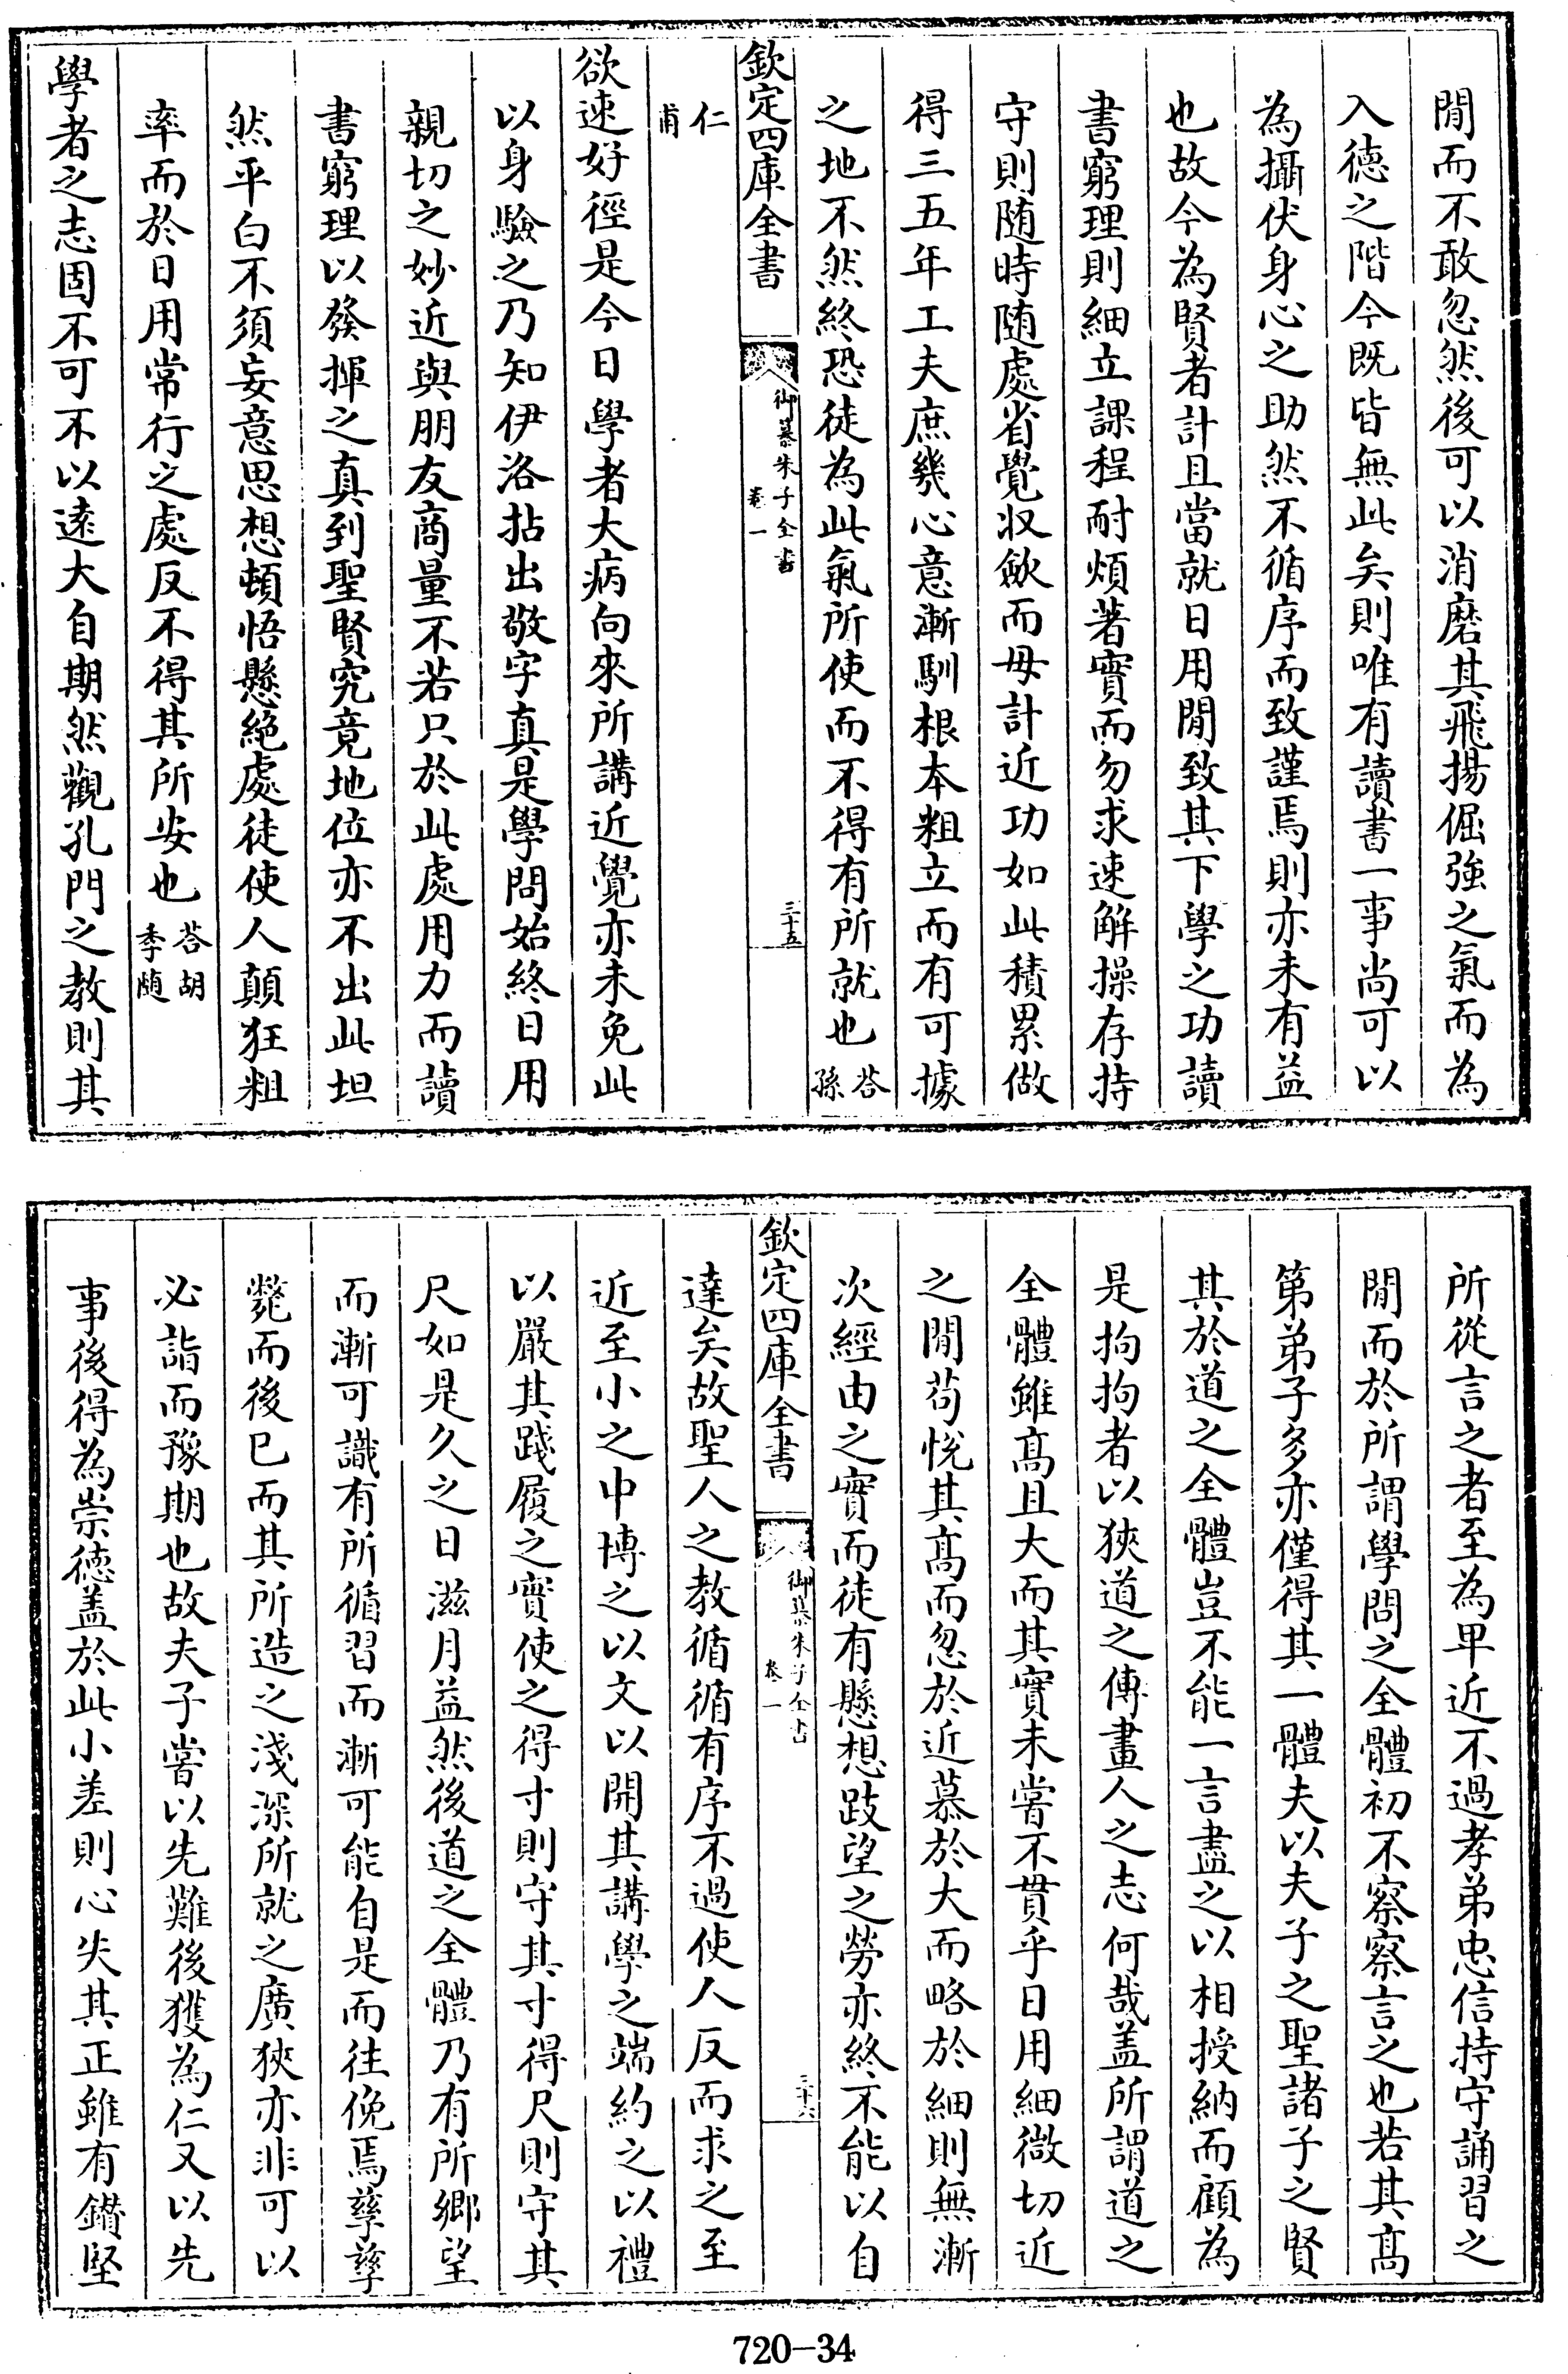 閒而不敢忽然後可以消磨其飛揚倔強之氣而為
入徳之階今既皆無此矣則唯有讀書一事尚可以
為攝伏身心之助然不循序而致謹焉則亦未有益
也故今為賢者計且當就日用閒致其下學之功讀
書窮理則細立課程耐煩著實而勿求速解操存持
守則随時随處省覺収歛而毋計近功如此積累做
得三五年工夫庶幾心意漸馴根本粗立而有可據
之地不然終恐徒為此氣所使而不得有所就也荅孫
欽定四庫全書
御纂朱子全書
卷一
三十五
仁甫
欲速好徑是今日學者大病向來所講近覺亦未免此
以身驗之乃知伊洛拈出敬字真是學問始終日用
親切之妙近與朋友商量不若只於此處用力而讀
書窮理以發揮之真到聖賢究竟地位亦不出此坦
然平白不須妄意思想頓悟懸絶處徒使人顛狂粗
率而於日用常行之處反不得其所安也荅胡季随
學者之志固不可不以遠大自期然觀孔門之教則其
所從言之者至為卑近不過孝弟忠信持守誦習之
閒而於所謂學問之全體初不察察言之也若其髙
第弟子多亦僅得其一體夫以夫子之聖諸子之賢
其於道之全體豈不能一言盡之以相授納而顧為
是拘拘者以狹道之傳畫人之志何哉盖所謂道之
全體雖髙且大而其實未嘗不貫乎日用細微切近
之閒苟悅其髙而忽於近慕於大而略於細則無漸
次經由之實而徒有懸想跂望之勞亦終不能以自
欽定四庫全書
御纂朱子全書
卷一
三十六
達矣故聖人之教循循有序不過使人反而求之至
近至小之中博之以文以開其講學之端約之以禮
以嚴其踐履之實使之得寸則守其寸得尺則守其
尺如是久之日滋月益然後道之全體乃有所鄉望
而漸可識有所循習而漸可能自是而往俛焉孳孳
斃而後已而其所造之淺深所就之廣狹亦非可以
必詣而豫期也故夫子嘗以先難後獲為仁又以先
事後得為崇徳盖於此小差則心失其正雖有鑽堅
720-34